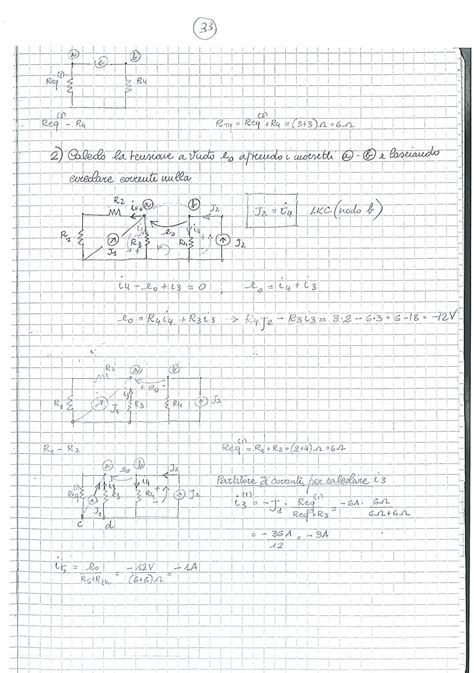 33
a c b
Req(1) R4
Req(2) - R4 RTH = Req(2) + R4 = (3+3)Ω = 6Ω
2) Calcolo la tensione a vuoto e0 aprendo i morsetti a - b e lasciando
circolare corrente nulla
R2 i=0 a b J2
R1 J1 R3 e0 R4 i4 J2
J2 = i4 LKC (nodo b)
i4 - e0 + i3 = 0 , e0 = i4 + i3
e0 = R4i4 + R3i3 → R4J2 - R3i3 = 3·2 - 6·3 = 6-18 = -12V
R2 a b
+ e0
R1 J1 i3 R3 R4 J2
R1 - R2 Req(1) = R1 + R2 = (2+4)Ω = 6Ω
a e0 b J2
Req(1) J1 i3 R3 i4 R4 J2
c d
Partitore di corrente per calcolare i3
i3(1) = -J1 · Req(1) / Req(1) + R3 = -6A · 6Ω / 6Ω+6Ω
= -36A / 12 = -3A
i5 = e0 / R5+RTH = -12V / (6+6)Ω = -1A